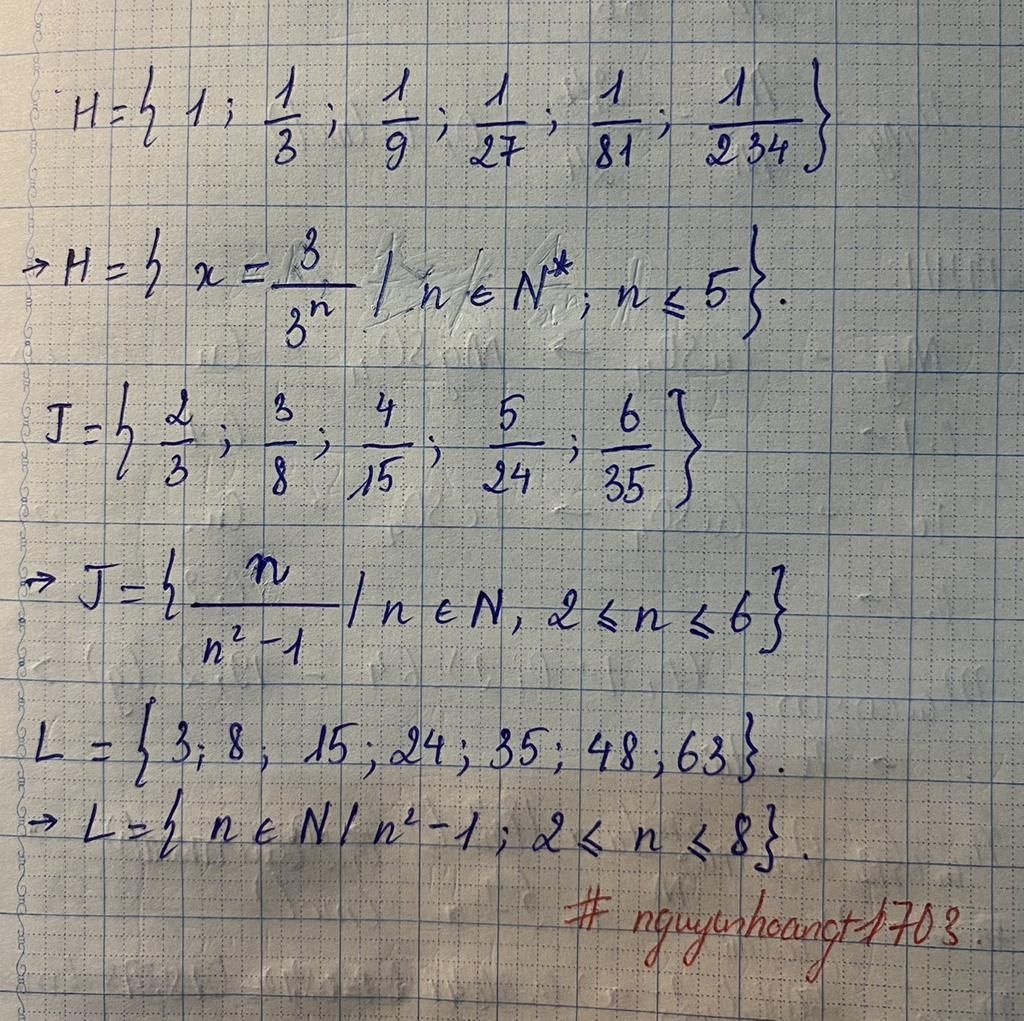 H = { 1 ; 1/3 ; 1/9 ; 1/27 ; 1/81 ; 1/234 }
→ H = { x = 3/3ⁿ / n ∈ N* ; n ≤ 5 }.
J = { 2/3 ; 3/8 ; 4/15 ; 5/24 ; 6/35 }
→ J = { n/(n² - 1) / n ∈ N, 2 ≤ n ≤ 6 }
L = { 3 ; 8 ; 15 ; 24 ; 35 ; 48 ; 63 }.
→ L = { n ∈ N / n² - 1 ; 2 ≤ n ≤ 8 }.
# nguyinhoangt1703.